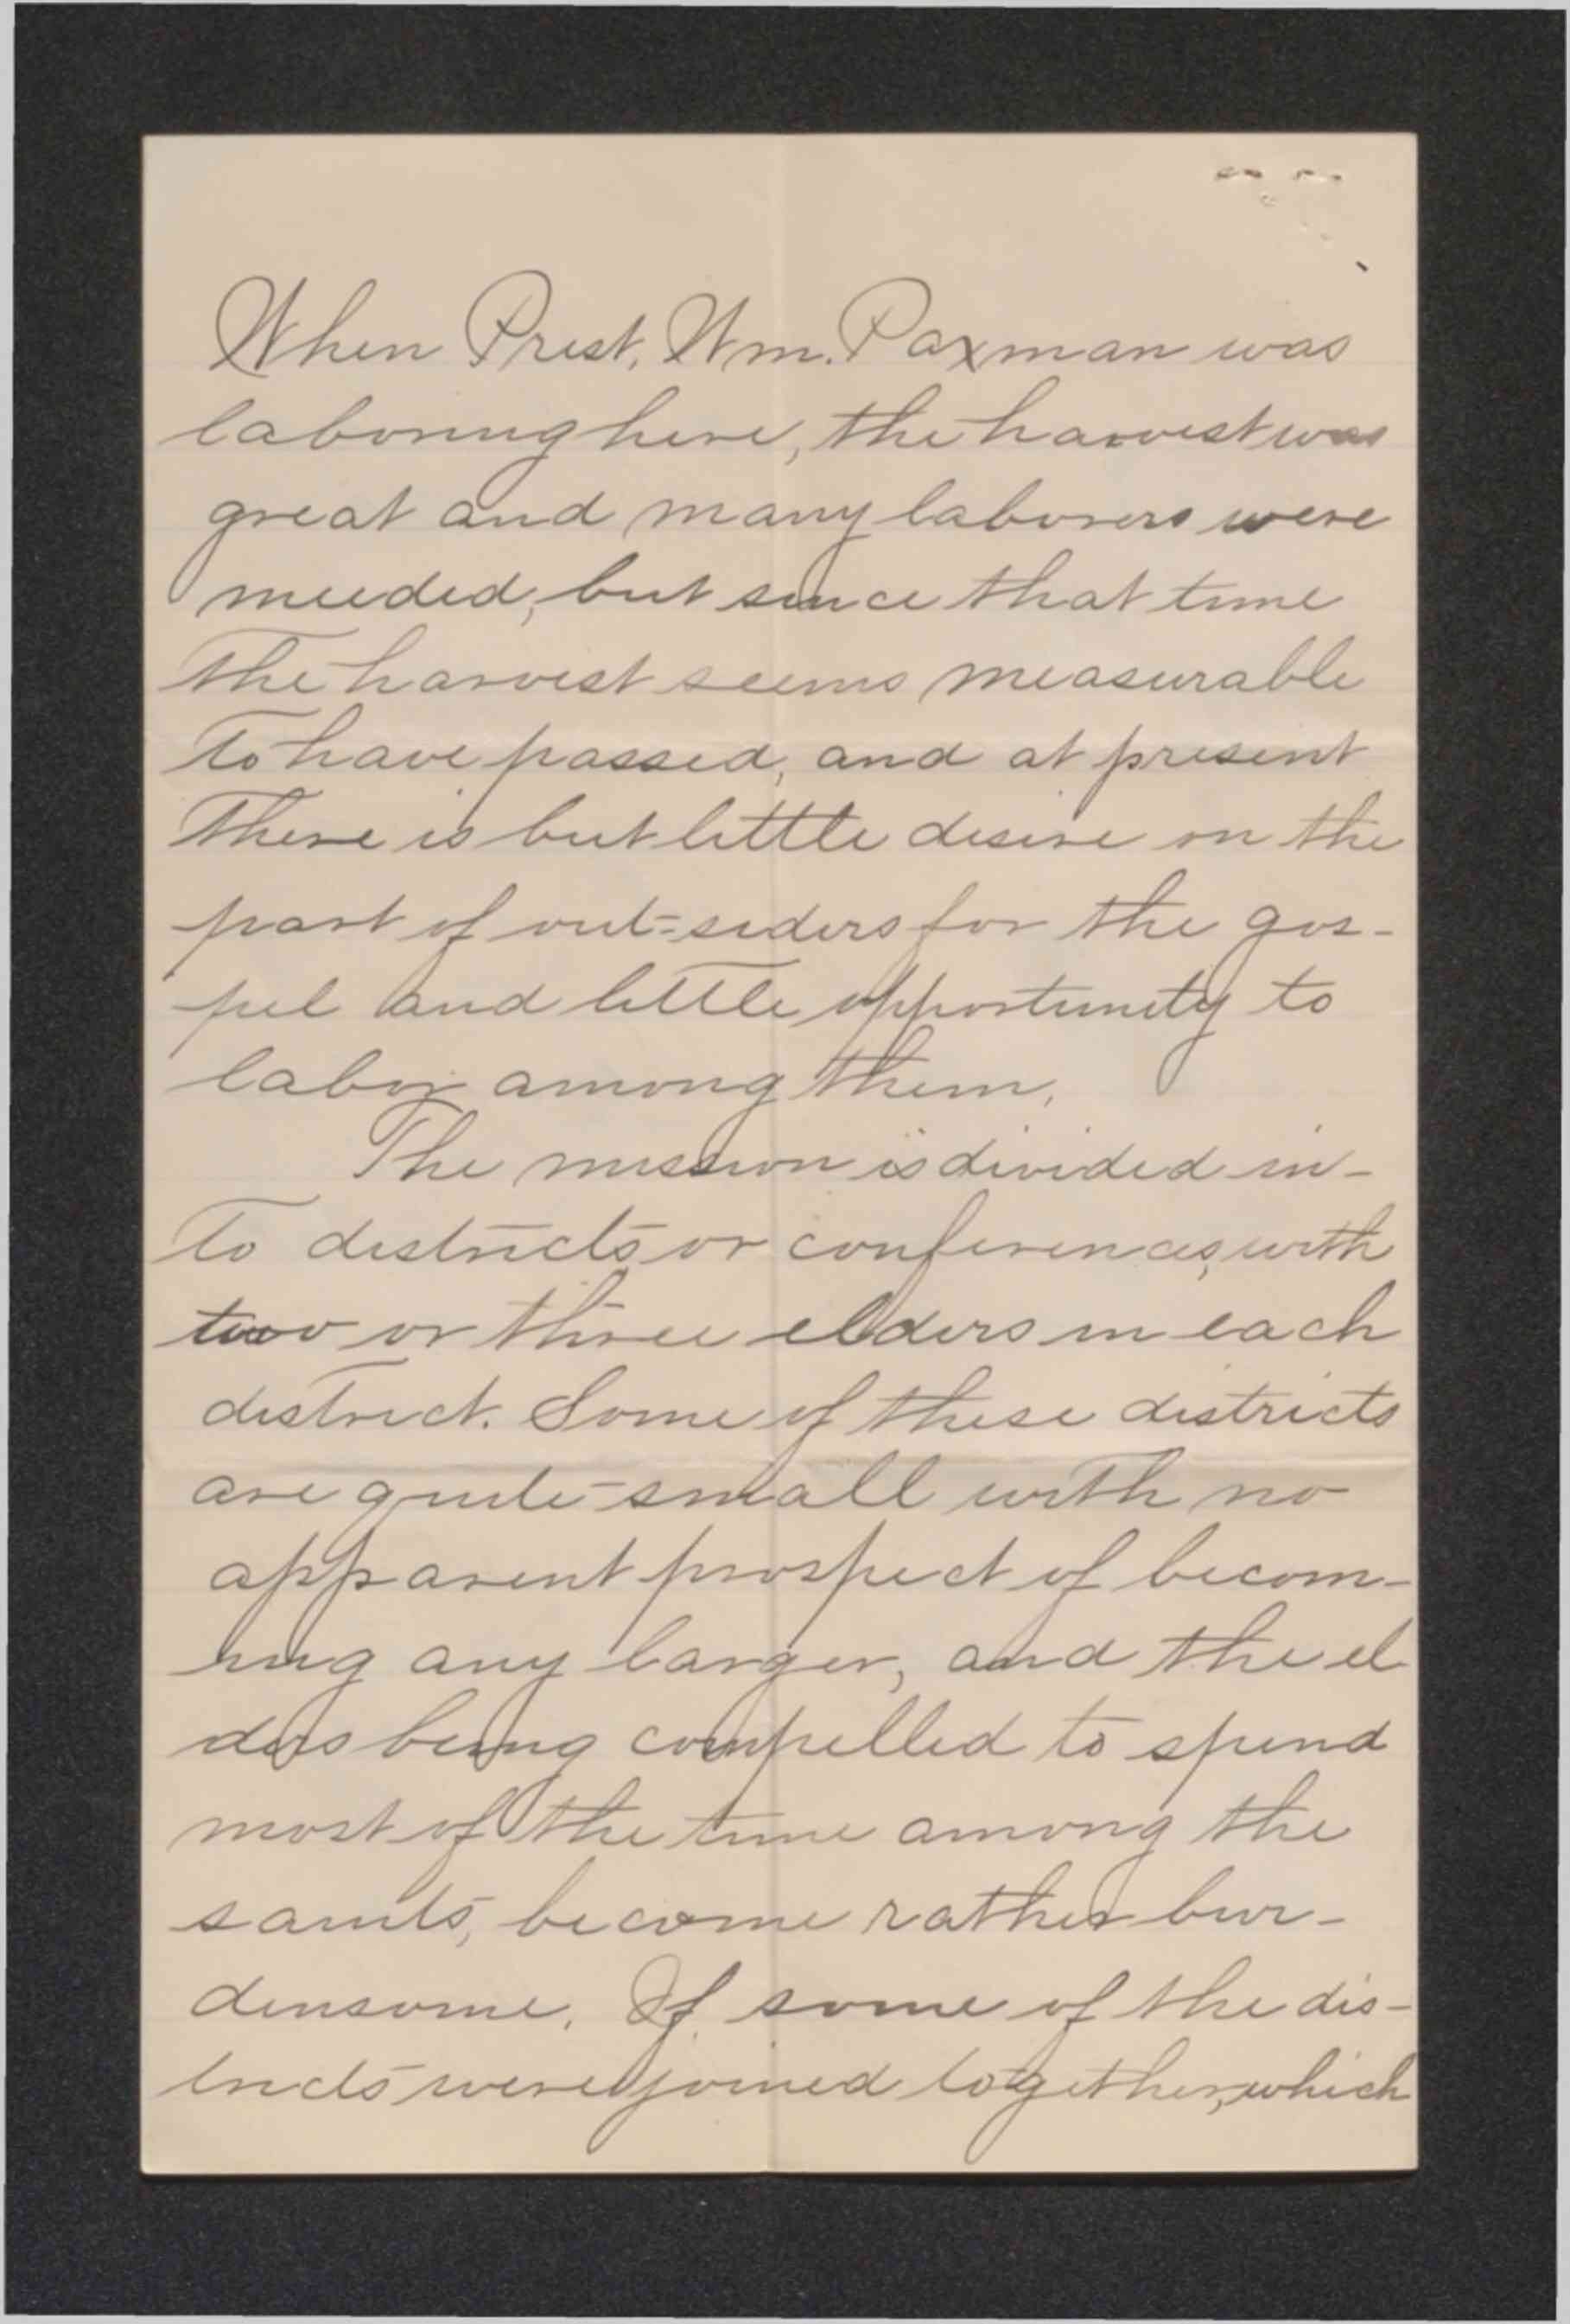 When Prest. Wm. Paxman was
laboring here, the harvest was
great and many laborers were
needed, but since that time
the harvest seems measurable
to have passed, and at present
there is but little desire on the
part of out=siders for the gos-
pel and little opportunity to
labor among them.
The mission is divided in-
to districts or conferences, with
two or three elders in each
district. Some of these districts
are quite small with no
apparent prospect of becom-
ing any larger, and the el
ders being compelled to spend
most of the time among the
saints, become rather bur-
densome. If some of the dis-
tricts were joined together, which